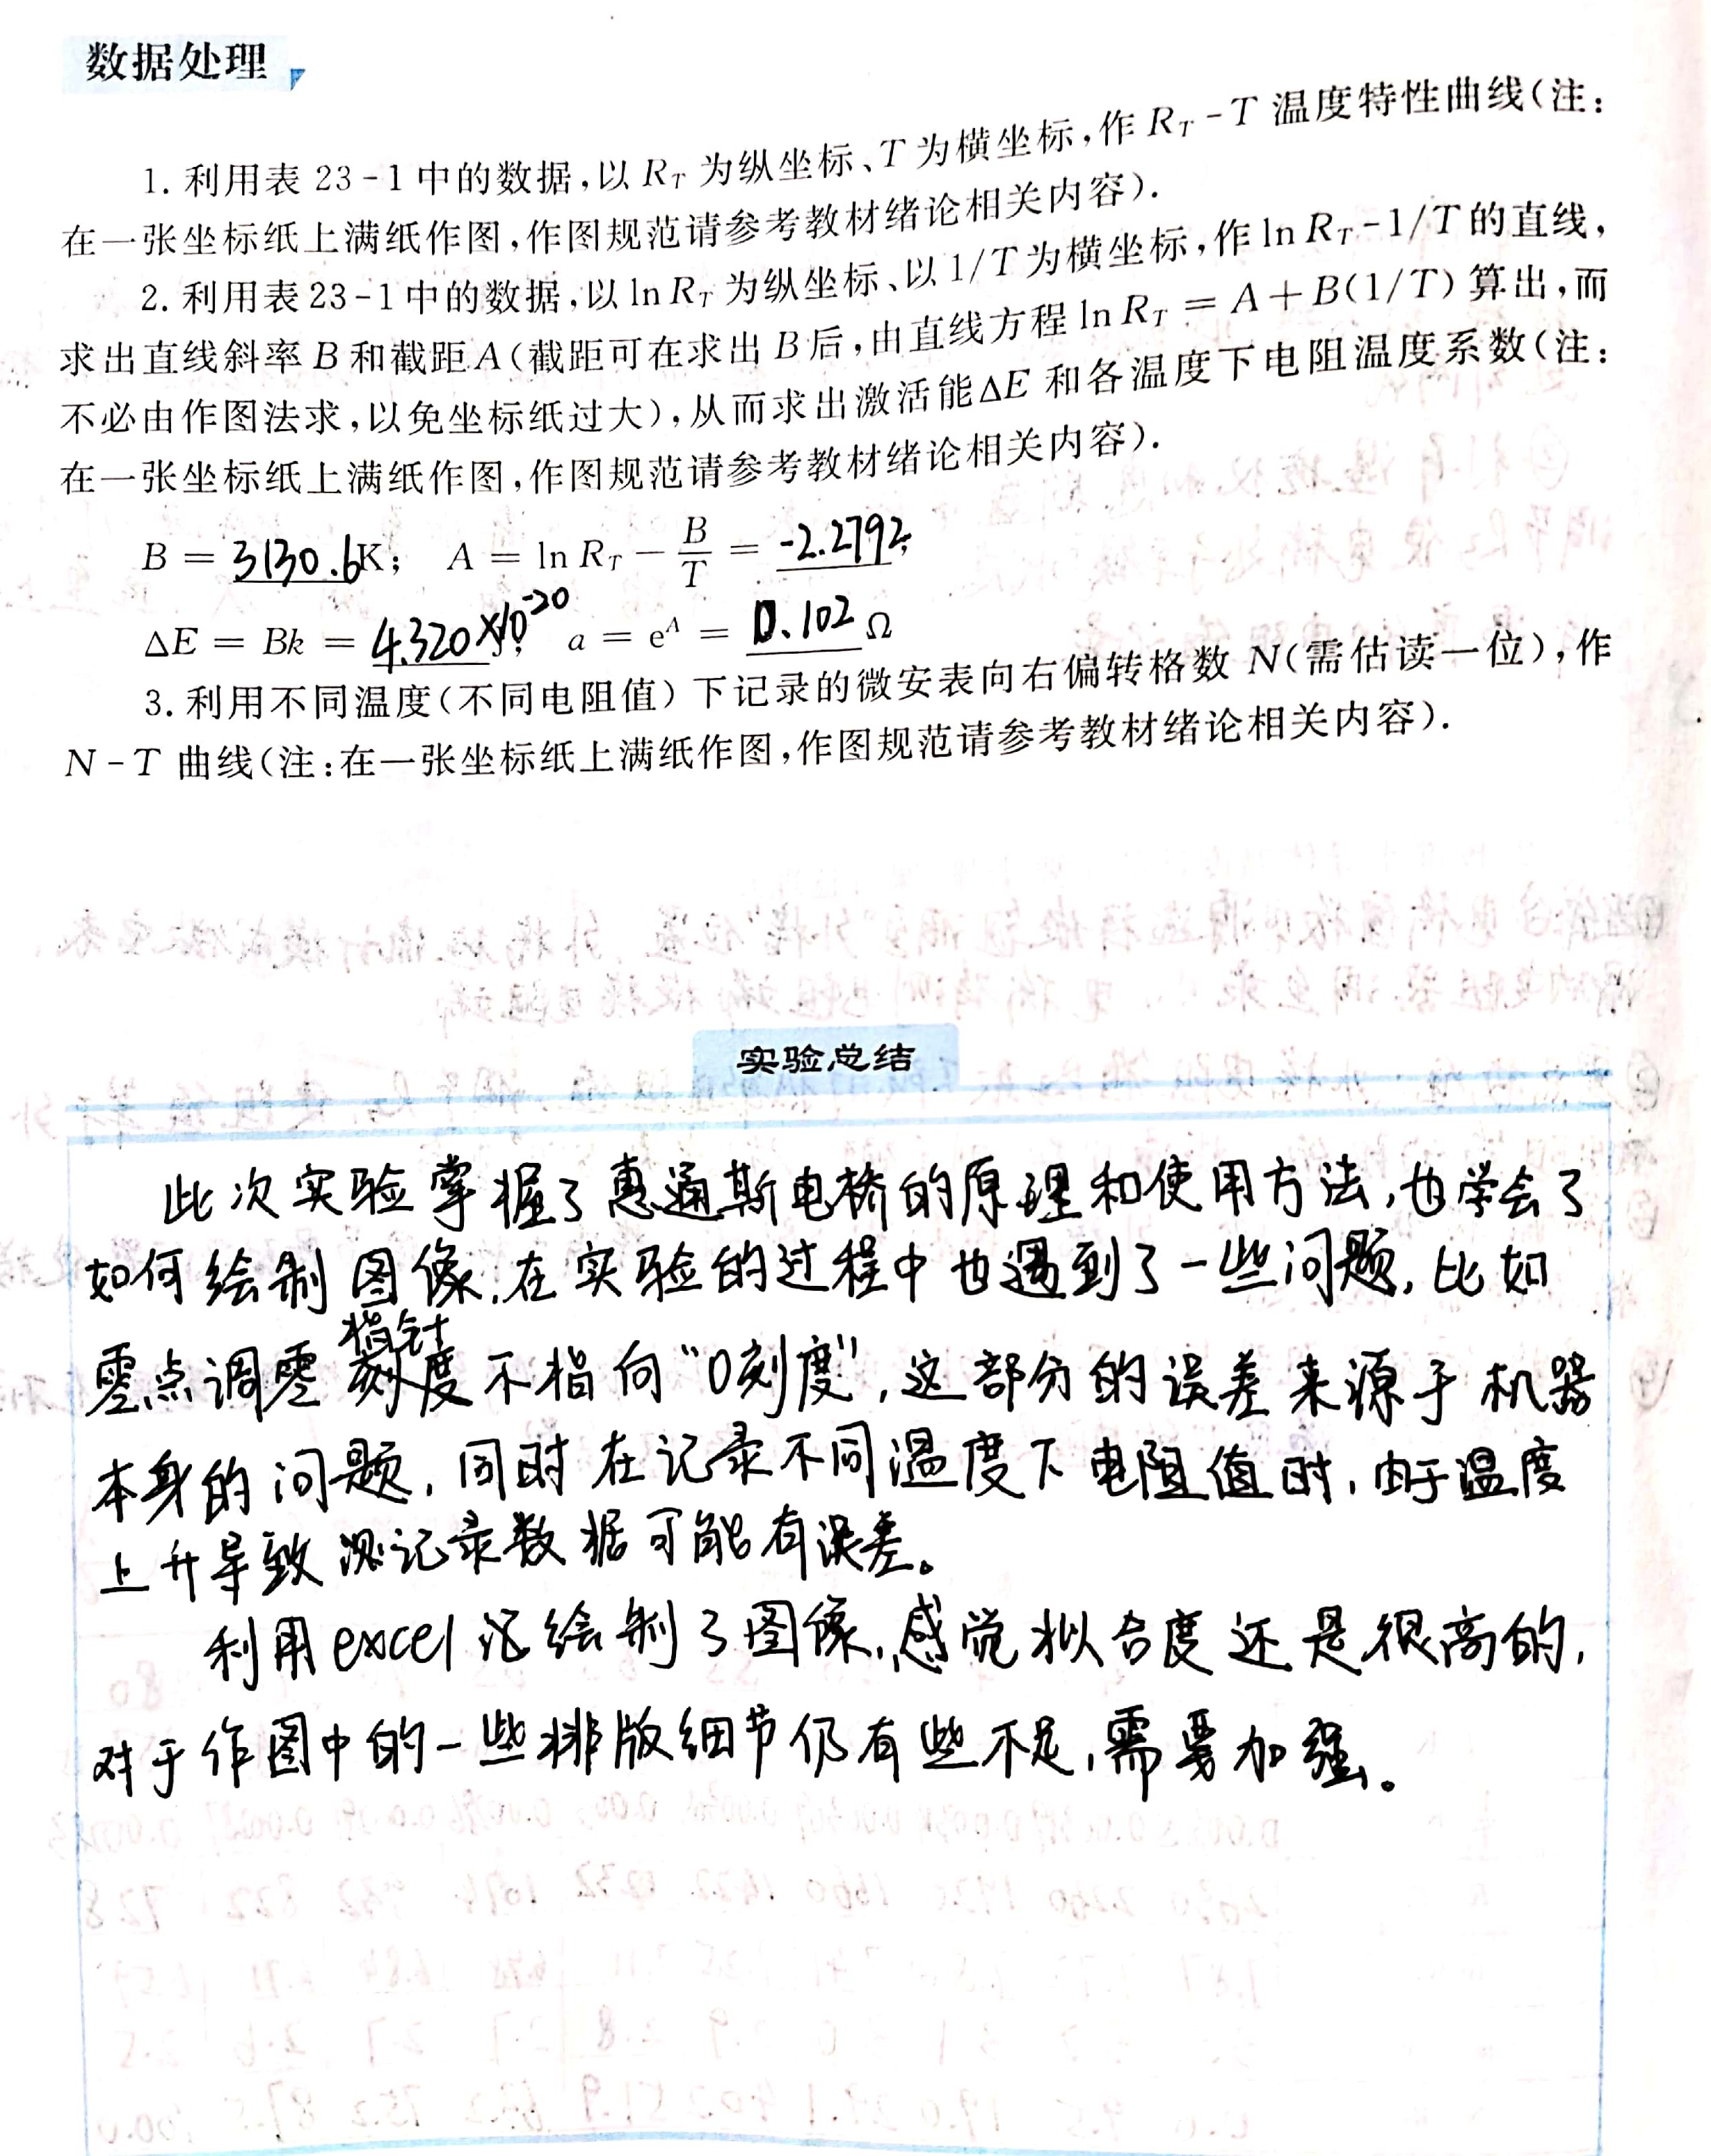 数据处理
1. 利用表 23-1 中的数据,以 R_T 为纵坐标、T 为横坐标,作 R_T-T 温度特性曲线(注:
在一张坐标纸上满纸作图,作图规范请参考教材绪论相关内容).
2. 利用表 23-1 中的数据,以 ln R_T 为纵坐标、以 1/T 为横坐标,作 ln R_T-1/T 的直线,
求出直线斜率 B 和截距 A(截距可在求出 B 后,由直线方程 ln R_T = A + B(1/T) 算出,而
不必由作图法求,以免坐标纸过大),从而求出激活能 ΔE 和各温度下电阻温度系数(注:
在一张坐标纸上满纸作图,作图规范请参考教材绪论相关内容).
B = 3130.6K; A = ln R_T − B/T = -2.2792;
ΔE = Bk = 4.320×10^-20 J; a = e^A = 0.102 Ω
3. 利用不同温度(不同电阻值)下记录的微安表向右偏转格数 N(需估读一位),作
N-T 曲线(注:在一张坐标纸上满纸作图,作图规范请参考教材绪论相关内容).
实验总结
此次实验掌握了惠通斯电桥的原理和使用方法,也学会了
如何绘制图像,在实验的过程中也遇到了一些问题,比如
零点调零指针不指向“0刻度”,这部分的误差来源于机器
本身的问题,同时在记录不同温度下电阻值时,由于温度
上升导致记录数据可能有误差。
利用excel绘制了图像,感觉拟合度还是很高的,
对于作图中的一些排版细节仍有些不足,需要加强。